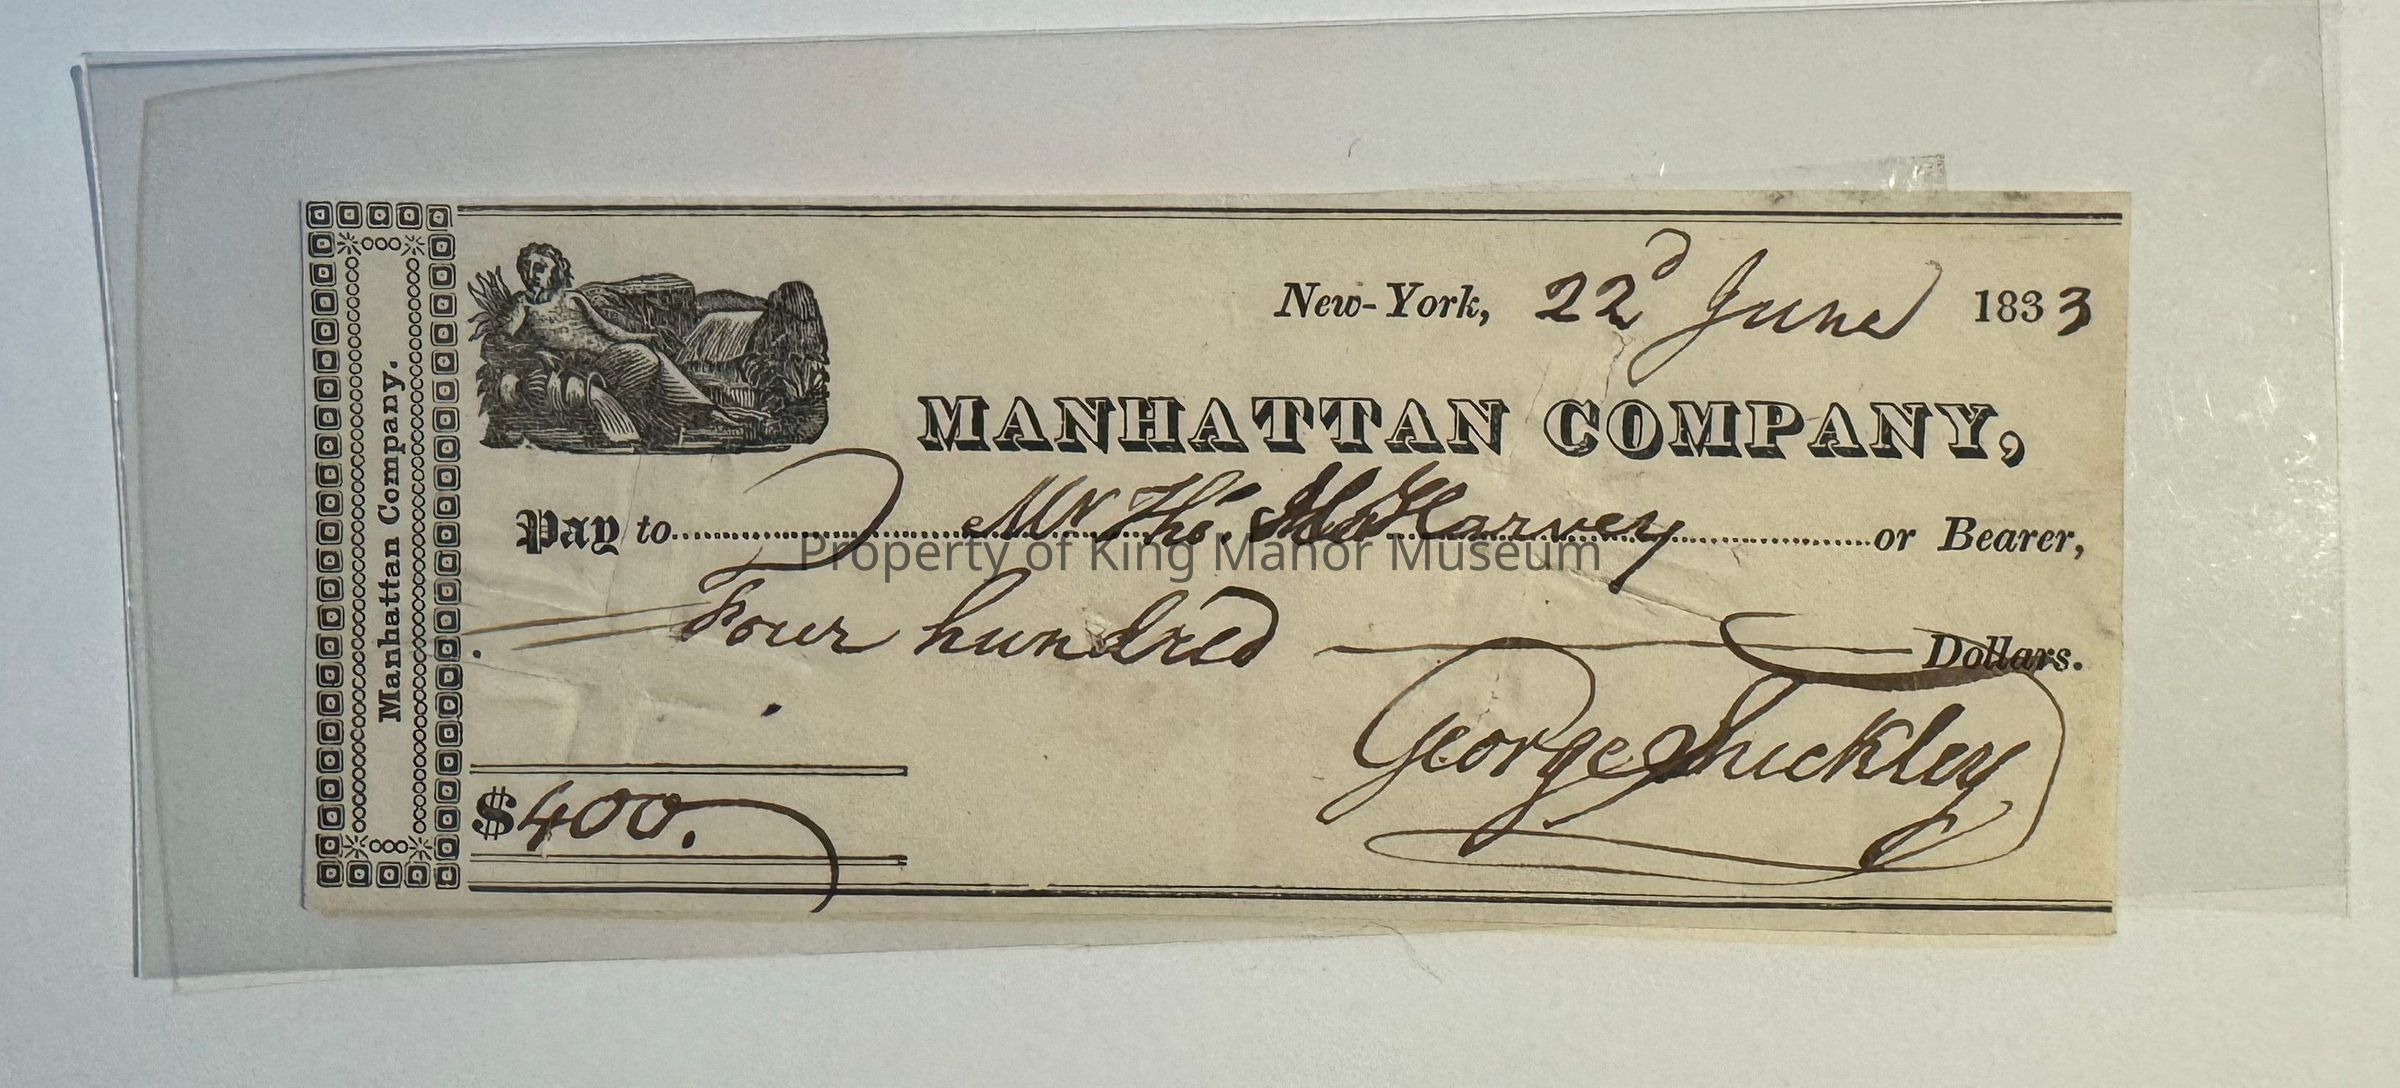 Manhattan Company.
New-York, 22d June 1833
MANHATTAN COMPANY,
Pay to Mr Thos. Harvey or Bearer,
Property of King Manor Museum
Four hundred Dollars.
George Suckley
$400.